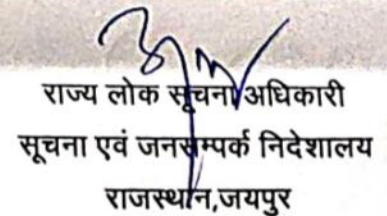 राज्य लोक सूचना अधिकारी
सूचना एवं जनसम्पर्क निदेशालय
राजस्थान,जयपुर